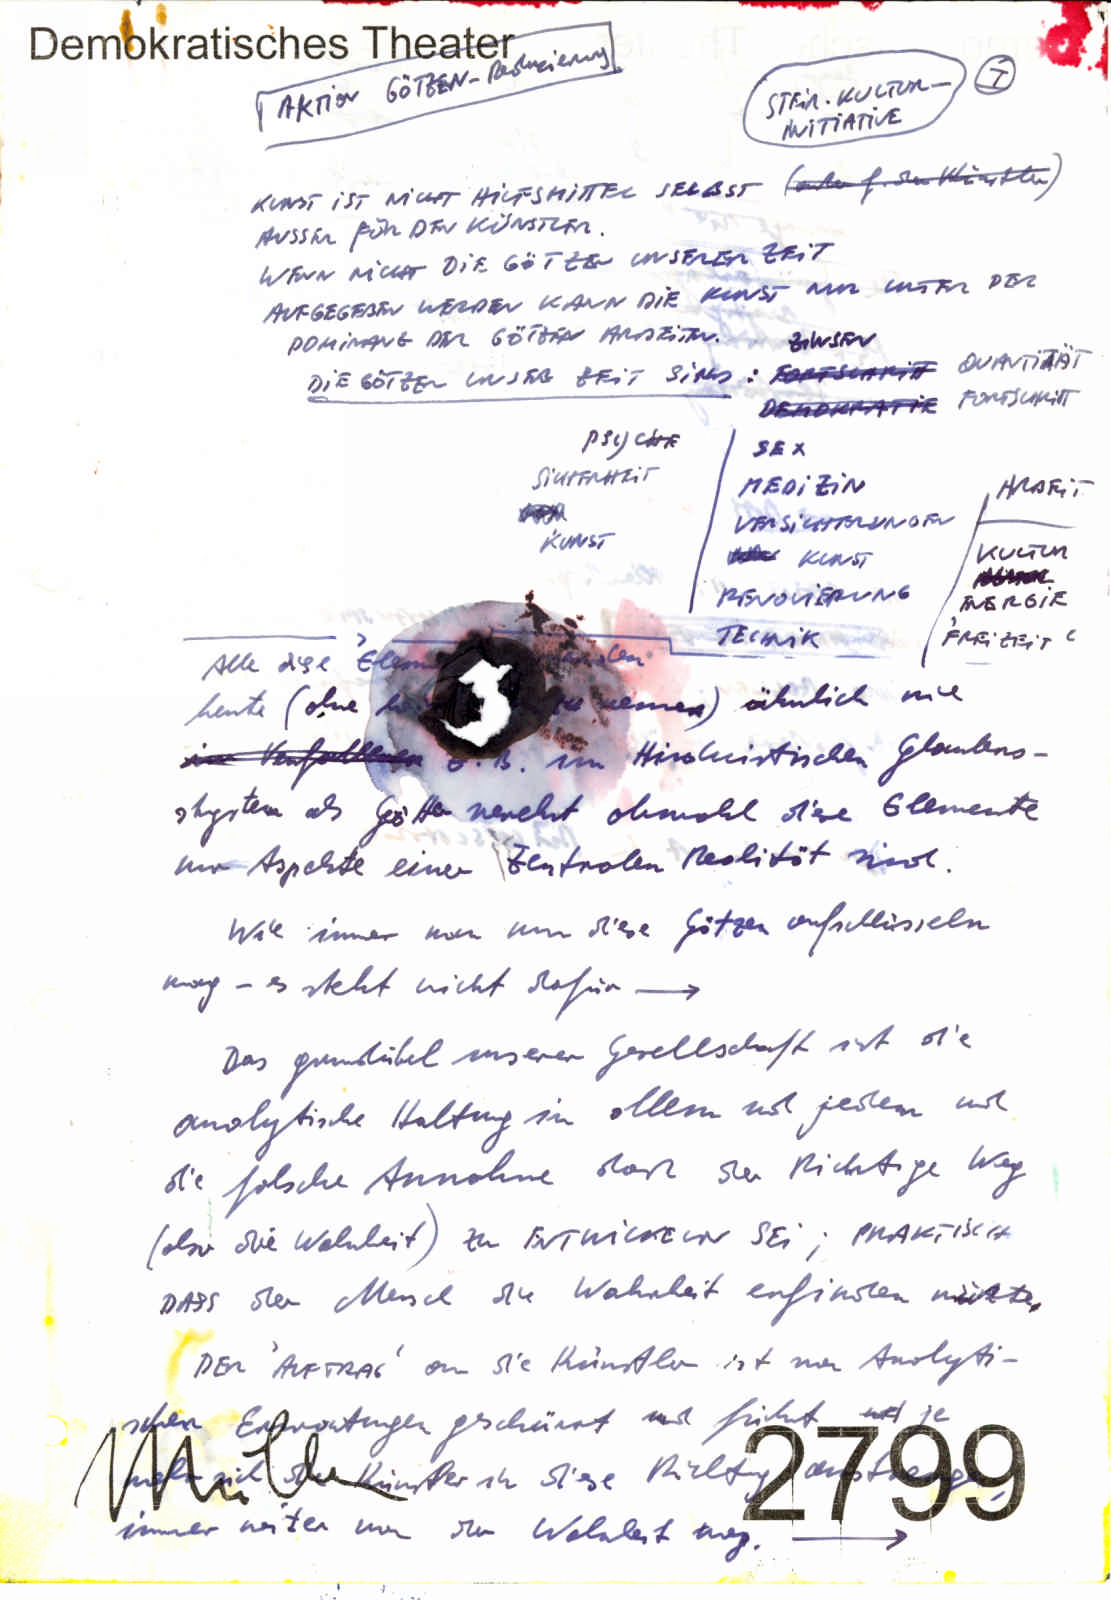 Demokratisches Theater
AKTION GÖTZEN-Reduzierung
STEIR. KULTUR-
INITIATIVE
I
KUNST IST NICHT HILFSMITTEL SELBST
AUSSER FÜR DEN KÜNSTLER.
WENN NICHT DIE GÖTZEN UNSERER ZEIT
AUFGEGEBEN WERDEN KANN DIE KUNST NUR UNTER DER
DOMINANZ DER GÖTZEN ARBEITEN.
ZINSEN
DIE GÖTZEN UNSER ZEIT SIND : FORTSCHRITT QUANTITÄT
DEMOKRATIE FORTSCHRITT
PSYCHE
SEX
SICHERHEIT
MEDIZIN
ARBEIT
VERSICHERUNGEN
KUNST
KUNST
KULTUR
RENOVIERUNG
ENERGIE
TECHNIK
FREIZEIT
Alle diese
heute (ohne nennen) ähnlich wie
z.B. im Hinduistischen Glaubens-
system als Götter verehrt obwohl diese Elemente
nur Aspekte einer Zentralen Realität sind.
Wie immer man nun diese Götzen aufschlüsseln
mag – es steht nicht dafür →
Das grundübel unserer Gesellschaft ist die
analytische Haltung in allem und jedem und
die falsche Annahme das der Richtige Weg
(also die Wahrheit) zu ENTWICKELN SEI; PRAKTISCH
DASS der Mensch die Wahrheit erfinden müsste.
DER 'AUFTRAG' an die Künstler ist von Analyti-
schen Erwartungen geschürt und führt je
mehr sich der Künstler in diese Richtung anstrengt,
immer weiter von der Wahrheit weg. →
2799